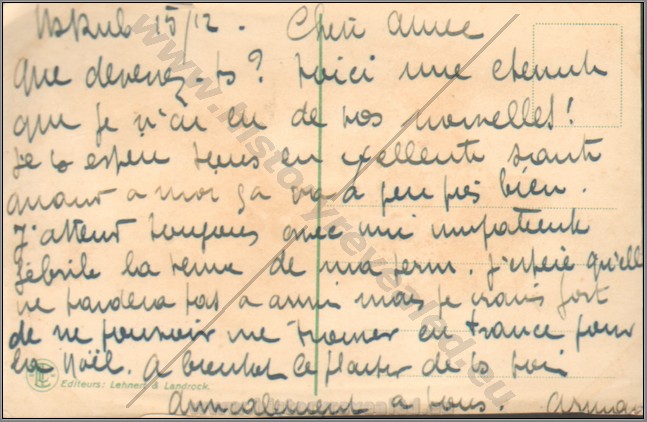 15/12. Cher amie
Que devenez-vs? Voici une éternité
que je n'ai eu de vos nouvelles!
Je vs espère tous en exellente santé
quant a moi ça va à peu près bien.
J'attend toujours avec une impatience
fébrile la venue de ma perm. J'espère qu'elle
ne tardera pas a arriver mais je crains fort
de ne pouvoir me trouver en France pour
la Noël. A bientot le plaisir de vs voir
Editeurs: Lehnert & Landrock.
Amicalement a tous. Arman
www.historyrevealed.eu